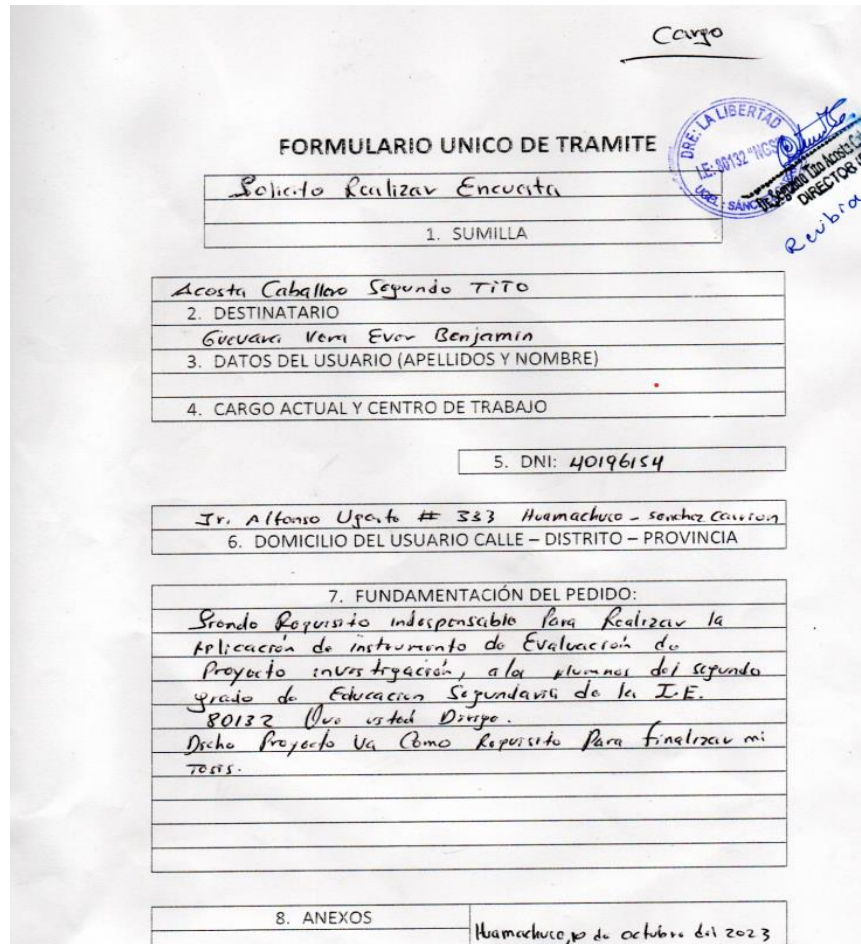 Cargo
DRE: LA LIBERTAD
I.E: 80132 "NGS"
UGEL: SANC
Segundo Tito Acosta Ca
DIRECTOR
Recibid
FORMULARIO UNICO DE TRAMITE
Solicito Realizar Encuesta
1. SUMILLA
Acosta Caballero Segundo TITO
2. DESTINATARIO
Guevara Vera Ever Benjamín
3. DATOS DEL USUARIO (APELLIDOS Y NOMBRE)
4. CARGO ACTUAL Y CENTRO DE TRABAJO
5. DNI: 40196154
Jr. Alfonso Ugarte # 333 Huamachuco - Sanchez Carrion
6. DOMICILIO DEL USUARIO CALLE – DISTRITO – PROVINCIA
7. FUNDAMENTACIÓN DEL PEDIDO:
Siendo Requisito indespensable Para Realizar la
Aplicación de instrumento de Evaluación de
Proyecto investigación, a los alumnos del segundo
grado de Educacion Segundaria de la I.E.
80132 Que usted Dirige.
Dicho Proyecto Va Como Requisito Para finalizar mi
Tesis.
8. ANEXOS
Huamachuco, 10 de octubre del 2023